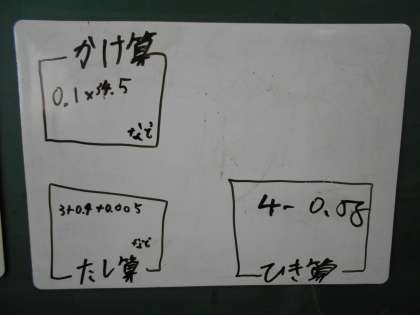 かけ算
0.1×34.5
など
3+0.4+0.005
など
たし算
4-0.55
ひき算